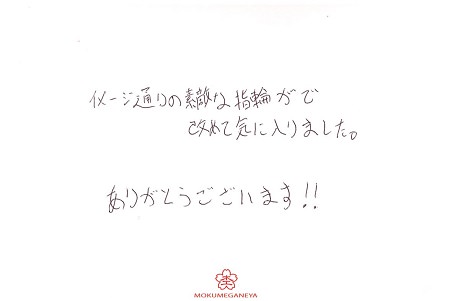 イメージ通りの素敵な指輪がで
改めて気に入りました。
ありがとうございます!!
MOKUMEGANEYA